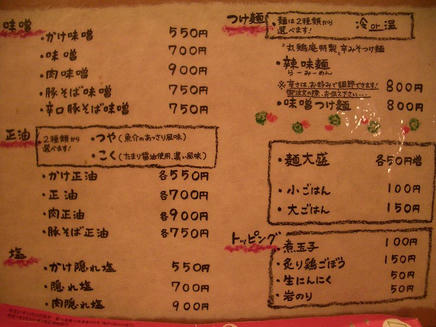 味噌
・かけ味噌 550円
・味噌 700円
・肉味噌 900円
・豚そば味噌 750円
・辛口豚そば味噌 750円
正油
2種類から選べます!
・つや(魚介のあっさり風味)
・こく(たまり醤油使用、濃い風味)
・かけ正油 各550円
・正油 各700円
・肉正油 各900円
・豚そば正油 各750円
塩
・かけ隠れ塩 550円
・隠れ塩 700円
・肉隠れ塩 900円
つけ麺
・麺は2種類から選べます! 冷or温
・丸鶏庵特製、辛みそつけ麺
・辣味麺 800円
らーみーめん
※辛さはお好みで調節できます!
御注文の際、お伝え下さい…
・味噌つけ麺 800円
・麺大盛 各50円増
・小ごはん 100円
・大ごはん 150円
トッピング
・煮玉子 100円
・炙り鶏ごぼう 150円
・生にんにく 50円
・岩のり 50円